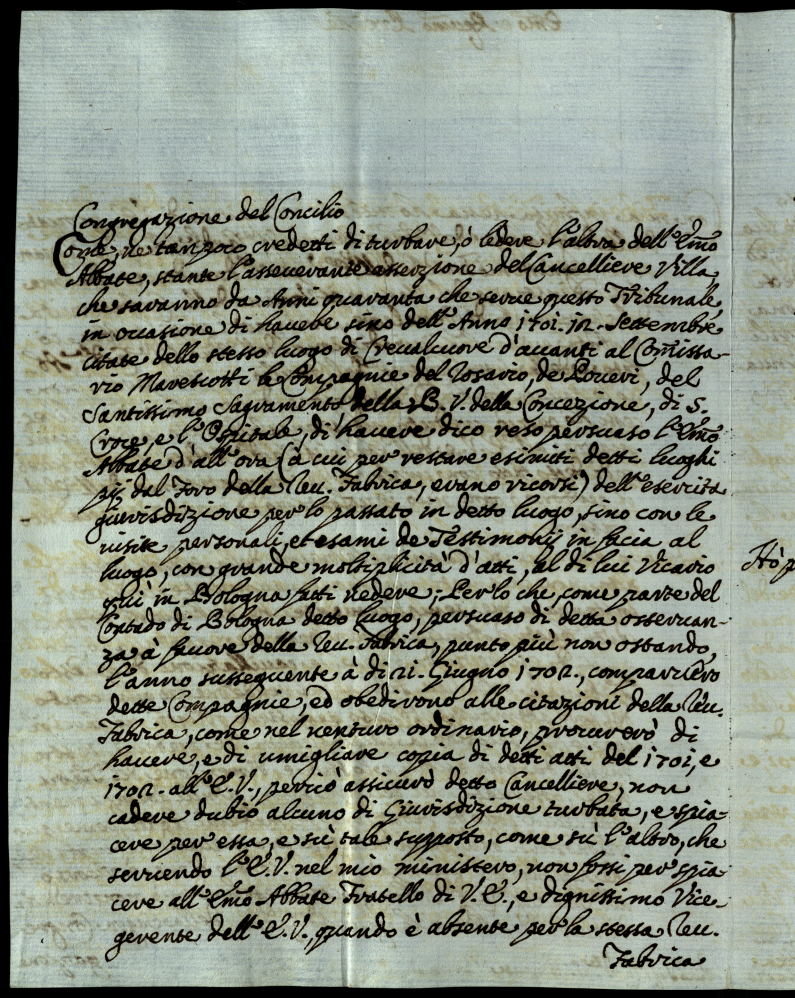 Congregazione del Concilio
Come, ne tanpoco credetti di turbare, ò ledere l'altra dell' Em̃o
Abbate, stante l'asseverante asserzione del Cancelliere Villa,
che saranno da Anni quaranta che serve questo Tribunale,
in occasione di havere sino dell' Anno 1701. 12. Settembre
citate dello stesso luogo di Crevalcuore d'avanti al Com̃issa-
rio Marescotti le Compagnie del Rosario, de Poveri, del
Santissimo Sagramento, della B. V. della Concezione, di S.
Croce, e l'Ospitale, di havere dico reso persuaso l'Em̃o
Abbate d'all'ora (à cui per restare esimiti detti luoghi
pij dal Foro della Reu. Fabrica, erano ricorsi) dell' esercita
giurisdizione per lo passato in detto luogo, sino con le
visite personali, et esami de Testimonij in facia al
luogo, con grande moltiplicità d'atti, al di lui Vicario
qui in Bologna fatti vedere; Per lo che, come parte del
Contado di Bologna detto luogo, persuaso di detta osservan-
za à favore della Reu. Fabrica, punto più non ostando,
l'anno susseguente à di 21. Giugno 1702., comparvero
dette Compagnie, ed obedirono alle citazioni della Reu.
Fabrica, come nel venturo ordinario, procurerò di
havere, e di umigliare copia di detti atti del 1701, e
1702. all' E. V., perciò assicurò detto Cancelliere, non
cadere dubio alcuno di Giurisdizione turbata, e spia-
cere per essa, e sù tale supposto, come sù l'altro, che
servendo l'E. V. nel mio ministero, non fossi per spia-
cere all' Em̃o Abbate Fratello di V. E., e dignissimo Vice-
gerente dell' E. V., quando è absente per la stessa Reu.
Fabrica
Hò p